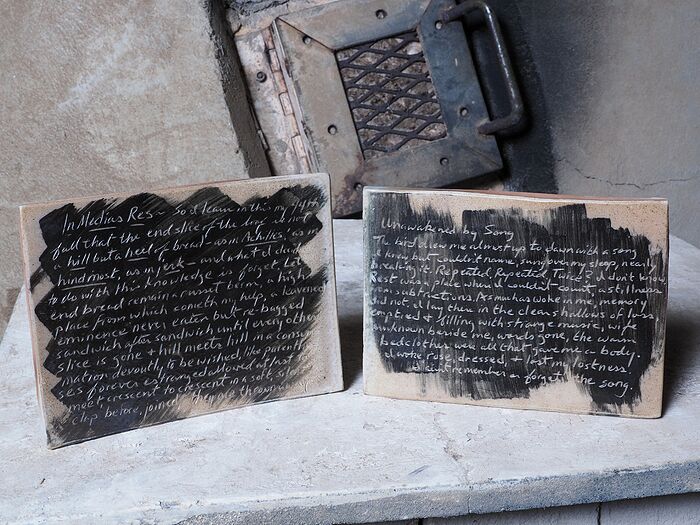 In Medias Res - So I learn in this my 14th
full that the end slice of the loaf is not
a hill but a heel of bread - as in Achilles', as in
hindmost, as in jerk - and what I choose
to do with this knowledge is forget. Let
end bread remain a russet berm, a high
place from which cometh my help, a leavened
eminence never eaten but re-bagged
sandwich after sandwich until every other
slice is gone & hill meets hill in a consum-
mation devoutly to be wished, like parenthe-
ses forever estranged allowed at last to
meet crescent to crescent in a soft slow
clap before, joined, they're thrown
Unawakened by Song
The bird slew me almost up to dawn with a song
I knew but couldn't name, sung over my sleep, nearly
breaking it. Repeated, Repeated Twice? I don't know,
Rest was a place where I couldn't count, a stillness
in such motions. As much as woke in me, memory
did not. I lay then in the clean shallows of loss
emptied & filling with strange music, wife
unknown beside me, words gone, the warm
bedclothes were all that gave me a body.
I woke, rose, dressed, & lost my lostness
I can't remember or forget the song.